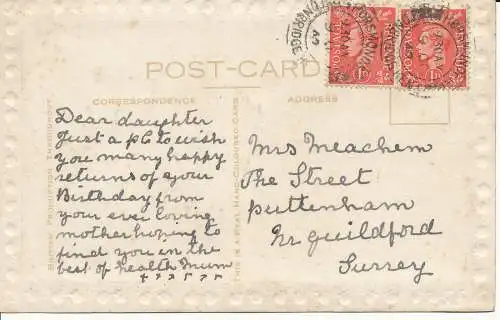 POST-CARD
CORRESPONDENCE
ADDRESS
Dear daughter
Just a pc to wish
you many happy
returns of your
Birthday from
your ever loving
mother hoping to
find you in the
best of health Mum
x x x x x x
BRITISH PRODUCTION THROUGHOUT
THIS IS A REAL HAND-COLOURED CARD
Mrs Meachem
The Street
puttenham
Nr guildford
Surrey